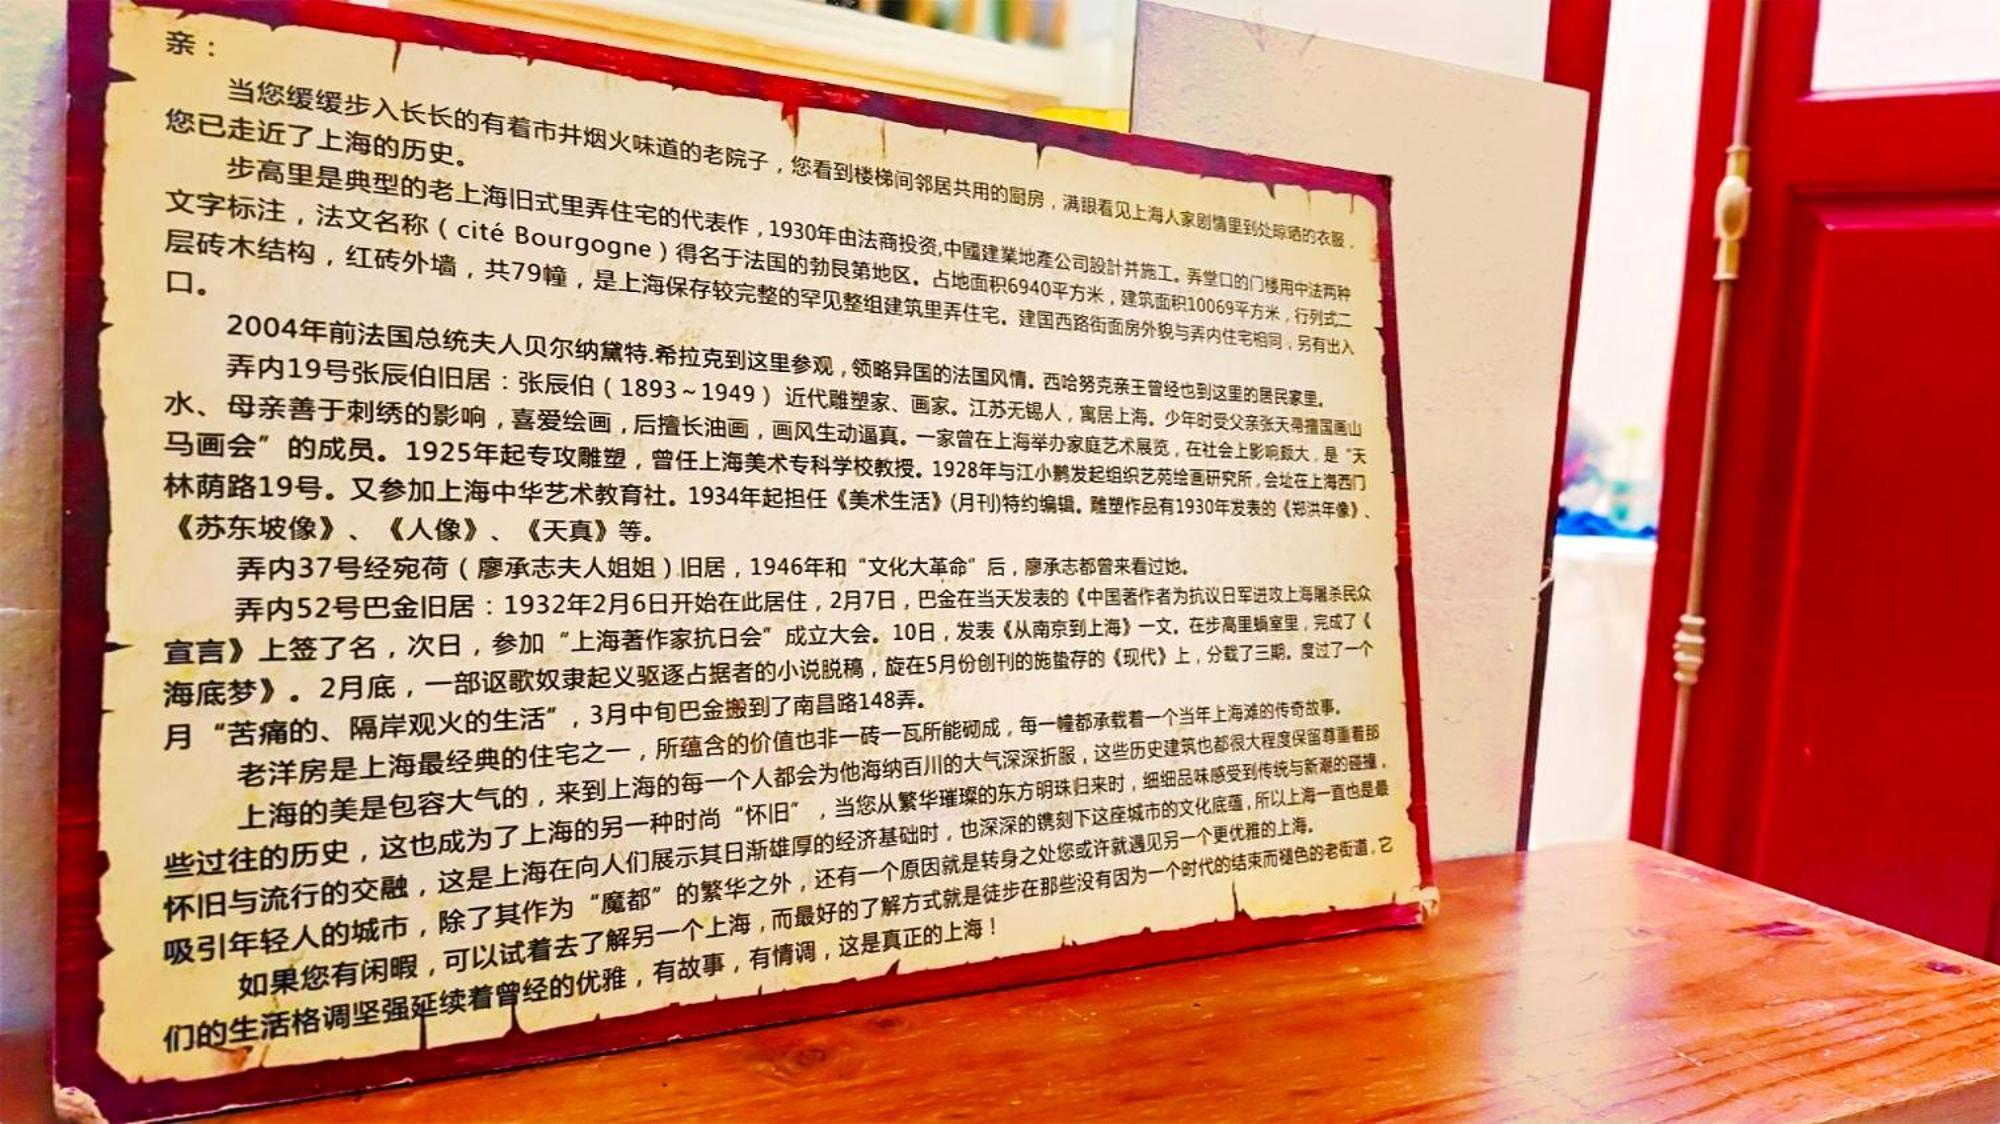 亲：
当您缓缓步入长长的有着市井烟火味道的老院子，您看到楼梯间邻居共用的厨房，满眼看见上海人家剧情里到处晾晒的衣服，
您已走近了上海的历史。
步高里是典型的老上海旧式里弄住宅的代表作，1930年由法商投资,中國建業地產公司設計并施工。弄堂口的门楼用中法两种
文字标注，法文名称（cité Bourgogne）得名于法国的勃艮第地区。占地面积6940平方米，建筑面积10069平方米，行列式二
层砖木结构，红砖外墙，共79幢，是上海保存较完整的罕见整组建筑里弄住宅。建国西路街面房外貌与弄内住宅相同，另有出入
口。
2004年前法国总统夫人贝尔纳黛特.希拉克到这里参观，领略异国的法国风情。西哈努克亲王曾经也到这里的居民家里。
弄内19号张辰伯旧居：张辰伯（1893～1949）近代雕塑家、画家。江苏无锡人，寓居上海。少年时受父亲张天帚擅国画山
水、母亲善于刺绣的影响，喜爱绘画，后擅长油画，画风生动逼真。一家曾在上海举办家庭艺术展览，在社会上影响颇大，是“天
马画会”的成员。1925年起专攻雕塑，曾任上海美术专科学校教授。1928年与江小鹣发起组织艺苑绘画研究所，会址在上海西门
林荫路19号。又参加上海中华艺术教育社。1934年起担任《美术生活》(月刊)特约编辑。雕塑作品有1930年发表的《郑洪年像》、
《苏东坡像》、《人像》、《天真》等。
弄内37号经宛荷（廖承志夫人姐姐）旧居，1946年和“文化大革命”后，廖承志都曾来看过她。
弄内52号巴金旧居：1932年2月6日开始在此居住，2月7日，巴金在当天发表的《中国著作者为抗议日军进攻上海屠杀民众
宣言》上签了名，次日，参加“上海著作家抗日会”成立大会。10日，发表《从南京到上海》一文。在步高里蜗室里，完成了《
海底梦》。2月底，一部讴歌奴隶起义驱逐占据者的小说脱稿，旋在5月份创刊的施蛰存的《现代》上，分载了三期。度过了一个
月“苦痛的、隔岸观火的生活”，3月中旬巴金搬到了南昌路148弄。
老洋房是上海最经典的住宅之一，所蕴含的价值也非一砖一瓦所能砌成，每一幢都承载着一个当年上海滩的传奇故事。
上海的美是包容大气的，来到上海的每一个人都会为他海纳百川的大气深深折服，这些历史建筑也都很大程度保留尊重着那
些过往的历史，这也成为了上海的另一种时尚“怀旧”，当您从繁华璀璨的东方明珠归来时，细细品味感受到传统与新潮的碰撞，
怀旧与流行的交融，这是上海在向人们展示其日渐雄厚的经济基础时，也深深的镌刻下这座城市的文化底蕴，所以上海一直也是最
吸引年轻人的城市，除了其作为“魔都”的繁华之外，还有一个原因就是转身之处您或许就遇见另一个更优雅的上海。
如果您有闲暇，可以试着去了解另一个上海，而最好的了解方式就是徒步在那些没有因为一个时代的结束而褪色的老街道，它
们的生活格调坚强延续着曾经的优雅，有故事，有情调，这是真正的上海！